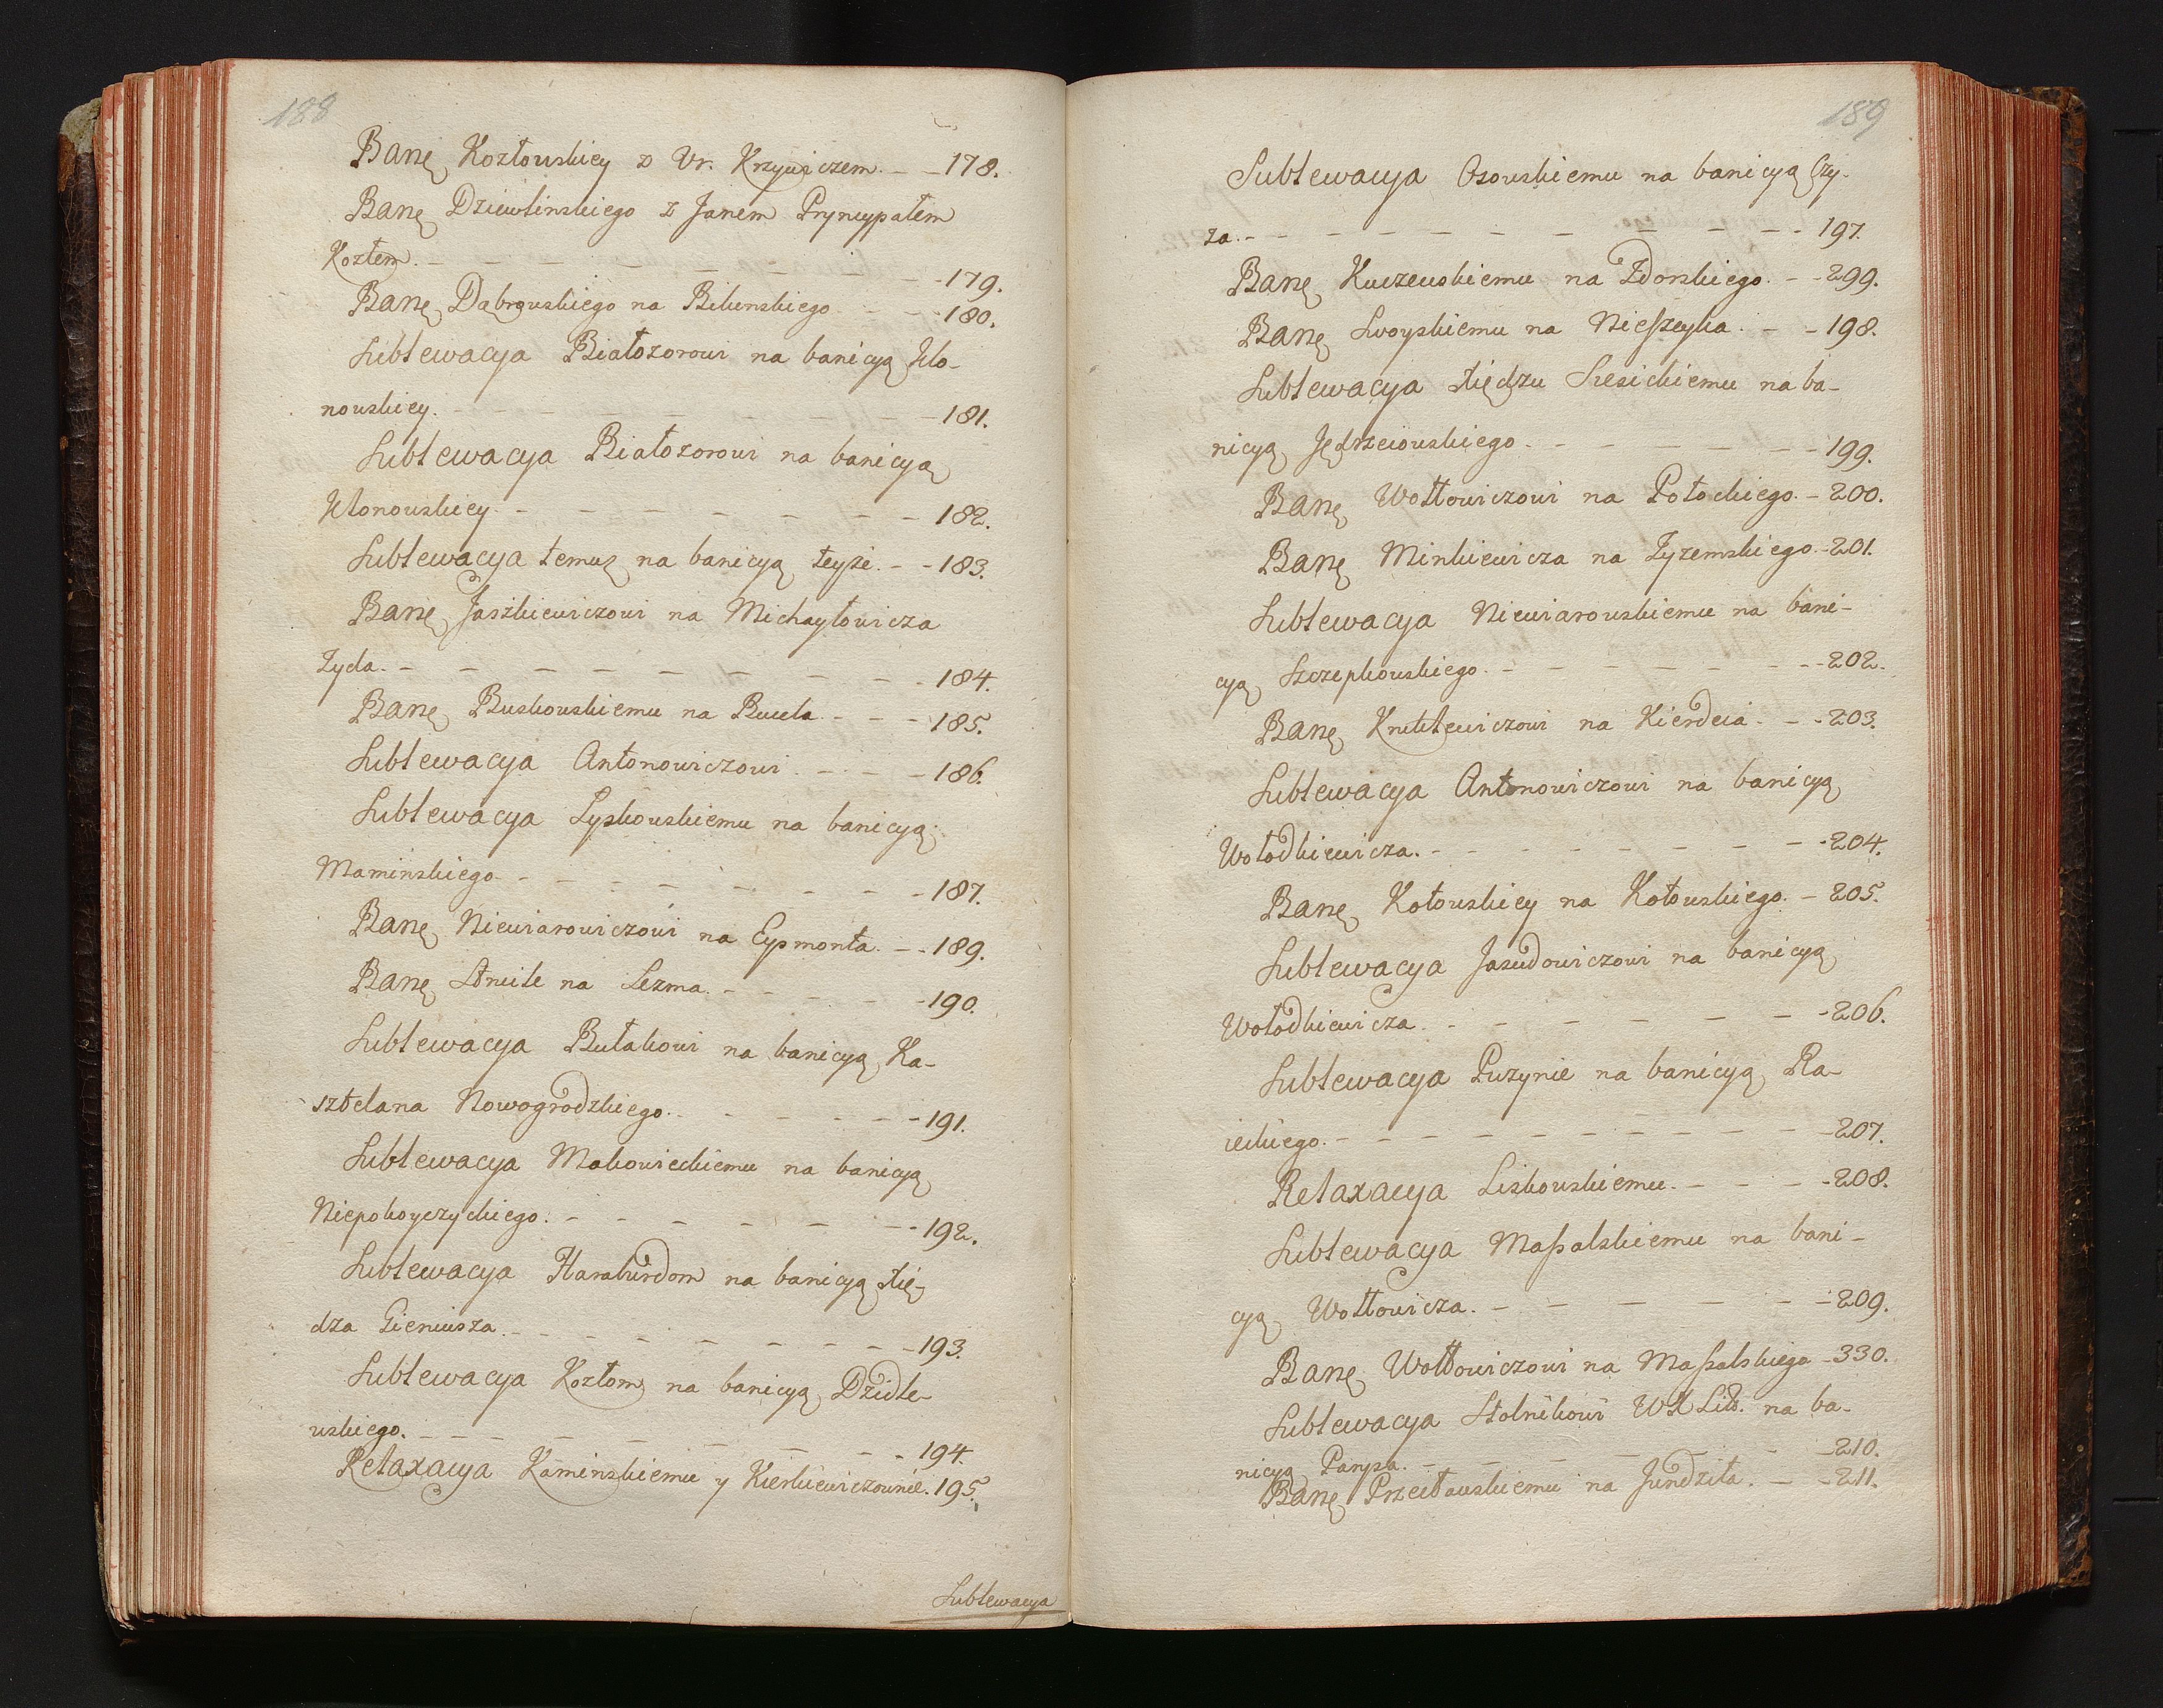 188
Banę Kozłowskiey z Ur. Krzywiczem. — — 178.
Banę Dziewlinskiego z Janem Pryncypałem
Kozłem. — — — — — — — — 179.
Banę Dąbrowskiego na Bikunskiego — — 180.
Sublewacya Białozorowi na banicyą Uło-
nowskiey. — — — — — — — — 181.
Sublewacya Białozorowi na banicyą
Ułonowskiey. — — — — — — — 182.
Sublewacya temuż na banicyą teyże. — — 183.
Banę Jaszkiewiczowi na Michayłowicza
Zyda. — — — — — — — — — 184.
Banę Buskowskiemu na Bucela. — — — 185.
Sublewacya Antonowiczowi. — — — 186.
Sublewacya Lyskowskiemu na banicyą
Maminskiego. — — — — — — — 187.
Banę Niewiarowiczowi na Eysmonta. — — 189.
Banę Strutle na Lezma. — — — — 190.
Sublewacya Bułakowi na banicyą Ka-
sztelana Nowogrodzkiego. — — — — 191.
Sublewacya Makowieckiemu na banicyą
Niepokoyczyckiego. — — — — — — 192.
Sublewacya Haraburdom na banicyą Xię-
dza Gieniusza. — — — — — — — 193.
Sublewacya Kozłom na banicyą Dzidle-
wskiego. — — — — — — — 194.
Relaxacya Kaminskiemu y Kierkiewiczownie. 195.
Sublewacya
189
Sublewacya Osowskiemu na banicyą Czy-
za. — — — — — — — — — — 197.
Banę Kuczewskiemu na Zdorskiego. — — 299.
Banę Swoyskiemu na Nieszeyka. — — 198.
Sublewacya Xiędzu Siesickiemu na ba-
nicyą Jędrzeiowskiego. — — — — — 199.
Banę Wołłowiczowi na Potockiego. — 200.
Banę Minkiewicza na Zyzemskiego. — 201.
Sublewacya Niewiarowskiemu na bani-
cyą Szczepkowskiego. — — — — — — 202.
Banę Knutlewiczowi na Kierdeia. — — 203.
Sublewacya Antonowiczowi na banicyą
Wołodkiewicza. — — — — — — — 204.
Banę Kotowskiey na Kotowskiego. — 205.
Sublewacya Jasudowiczowi na banicyą
Wołodkiewicza. — — — — — — — 206.
Sublewacya Puzynie na banicyą Ra-
ieckiego. — — — — — — — — — 207.
Relaxacya Liskowskiemu. — — — 208.
Sublewacya Massalskiemu na bani-
cyą Wołłowicza. — — — — — — 209.
Banę Wołłowiczowi na Massalskiego — 330.
Sublewacya Stolnikowi WX Lit. na ba-
nicyą Parysa. — — — — — — — 210.
Banę Przecławskiemu na Jundziła. — — 211.